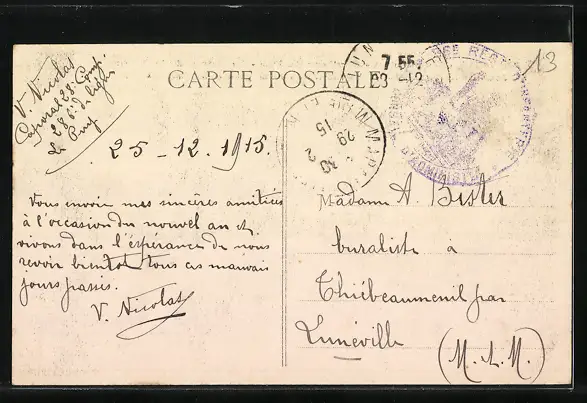 13
CARTE POSTALE
V. Nicolas
Caporal 28e Comp.
286e de ligne
Le Puy
7 55.
23 -12
25-12.1915.
Vous envoir mes sincères amitiées
à l'occasion du nouvel an et
vivons dans l'espérance de nous
revoir bientot tous ces mauvais
jours passés.
V. Nicolas
Madame A. Bister
buraliste à
Thiébeauménil par
Lunéville
(M. & M.)